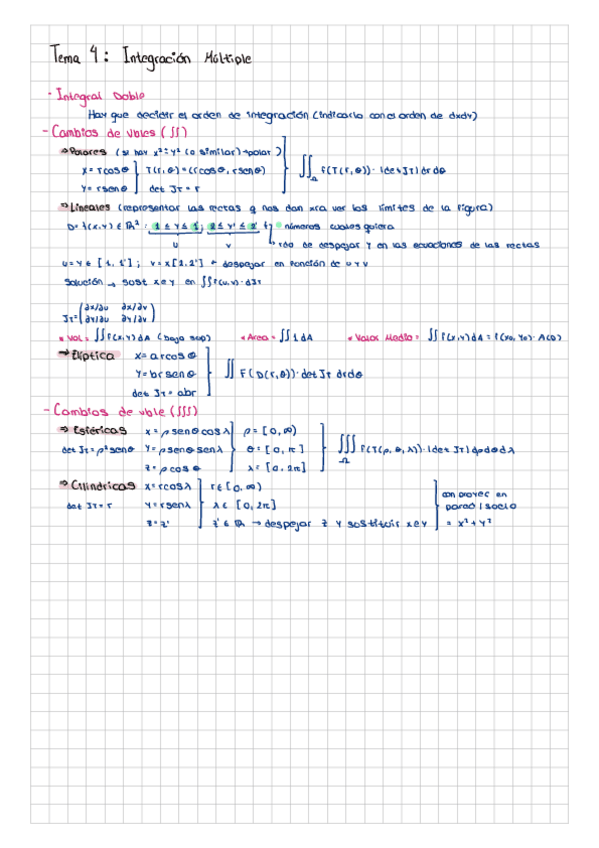 Tema 4: Integración Múltiple
- Integral Doble
Hay que decidir el orden de integración (indicarlo con el orden de dxdy)
- Cambios de vbles (∬)
⇒ Polares (si hay x²+y² (o similar) → polar)
x = rcosθ } T(r,θ) = (rcosθ, rsenθ)
y = rsenθ } det JT = r
∬_Ω f(T(r,θ)) · |det JT| dr dθ
⇒ Lineales (representar las rectas q nos dan xra ver los límites de la figura)
D = {(x,y) ∈ ℝ²: 1 ≤ y ≤ 1', 2 ≤ y' ≤ 2'} números cualesquiera
u v rdo de despejar y en las ecuaciones de las rectas
u = y ∈ [1, 1'] ; v = x[2, 2'] despejar en función de u y v
Solución → sost x e y en ∬ f(u,v) · dJT
JT = (∂x/∂u ∂x/∂v
∂y/∂u ∂y/∂v)
* Vol = ∬ f(x,y) dA (bajo sup) * Area = ∬ 1 dA * Valor Medio = ∬ f(x,y) dA = f(x₀, y₀) · A(D)
→ Elíptica x = a r cosθ
y = b r senθ ∬ f(D(r,θ)) · det JT dr dθ
det JT = abr
- Cambios de vble (∭)
⇒ Esféricas x = ρ senθ cosλ ρ = [0, ∞)
det JT = ρ² senθ y = ρ senθ senλ θ = [0, π] ∭_Ω f(T(ρ, θ, λ)) · |det JT| dρ dθ dλ
z = ρ cosθ λ = [0, 2π]
⇒ Cilíndricas x = rcosλ r ∈ [0, ∞) con proyec en
det JT = r y = rsenλ λ ∈ [0, 2π]
z = z' z' ∈ ℝ → despejar z y sostituir x e y = x² + y²